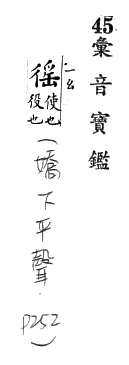 45彙音寶鑑
一ㄠ
徭
使也
役也
(嬌下平聲.
P252)